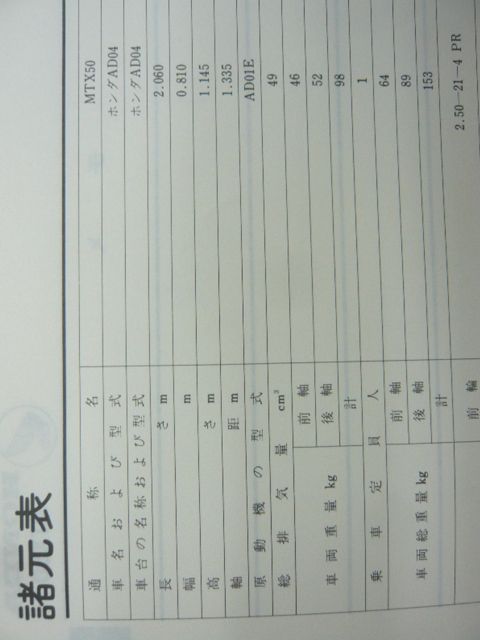 諸元表
通称名 MTX50
車名および型式 ホンダAD04
車台の名称および型式 ホンダAD04
長さ m 2.060
幅 m 0.810
高さ m 1.145
軸距 m 1.335
原動機の型式 AD01E
総排気量 cm³ 49
車両重量 kg 前軸 46
後軸 52
計 98
乗車定員 人 1
車両総重量 kg 前軸 64
後軸 89
計 153
前輪 2.50-21-4 PR